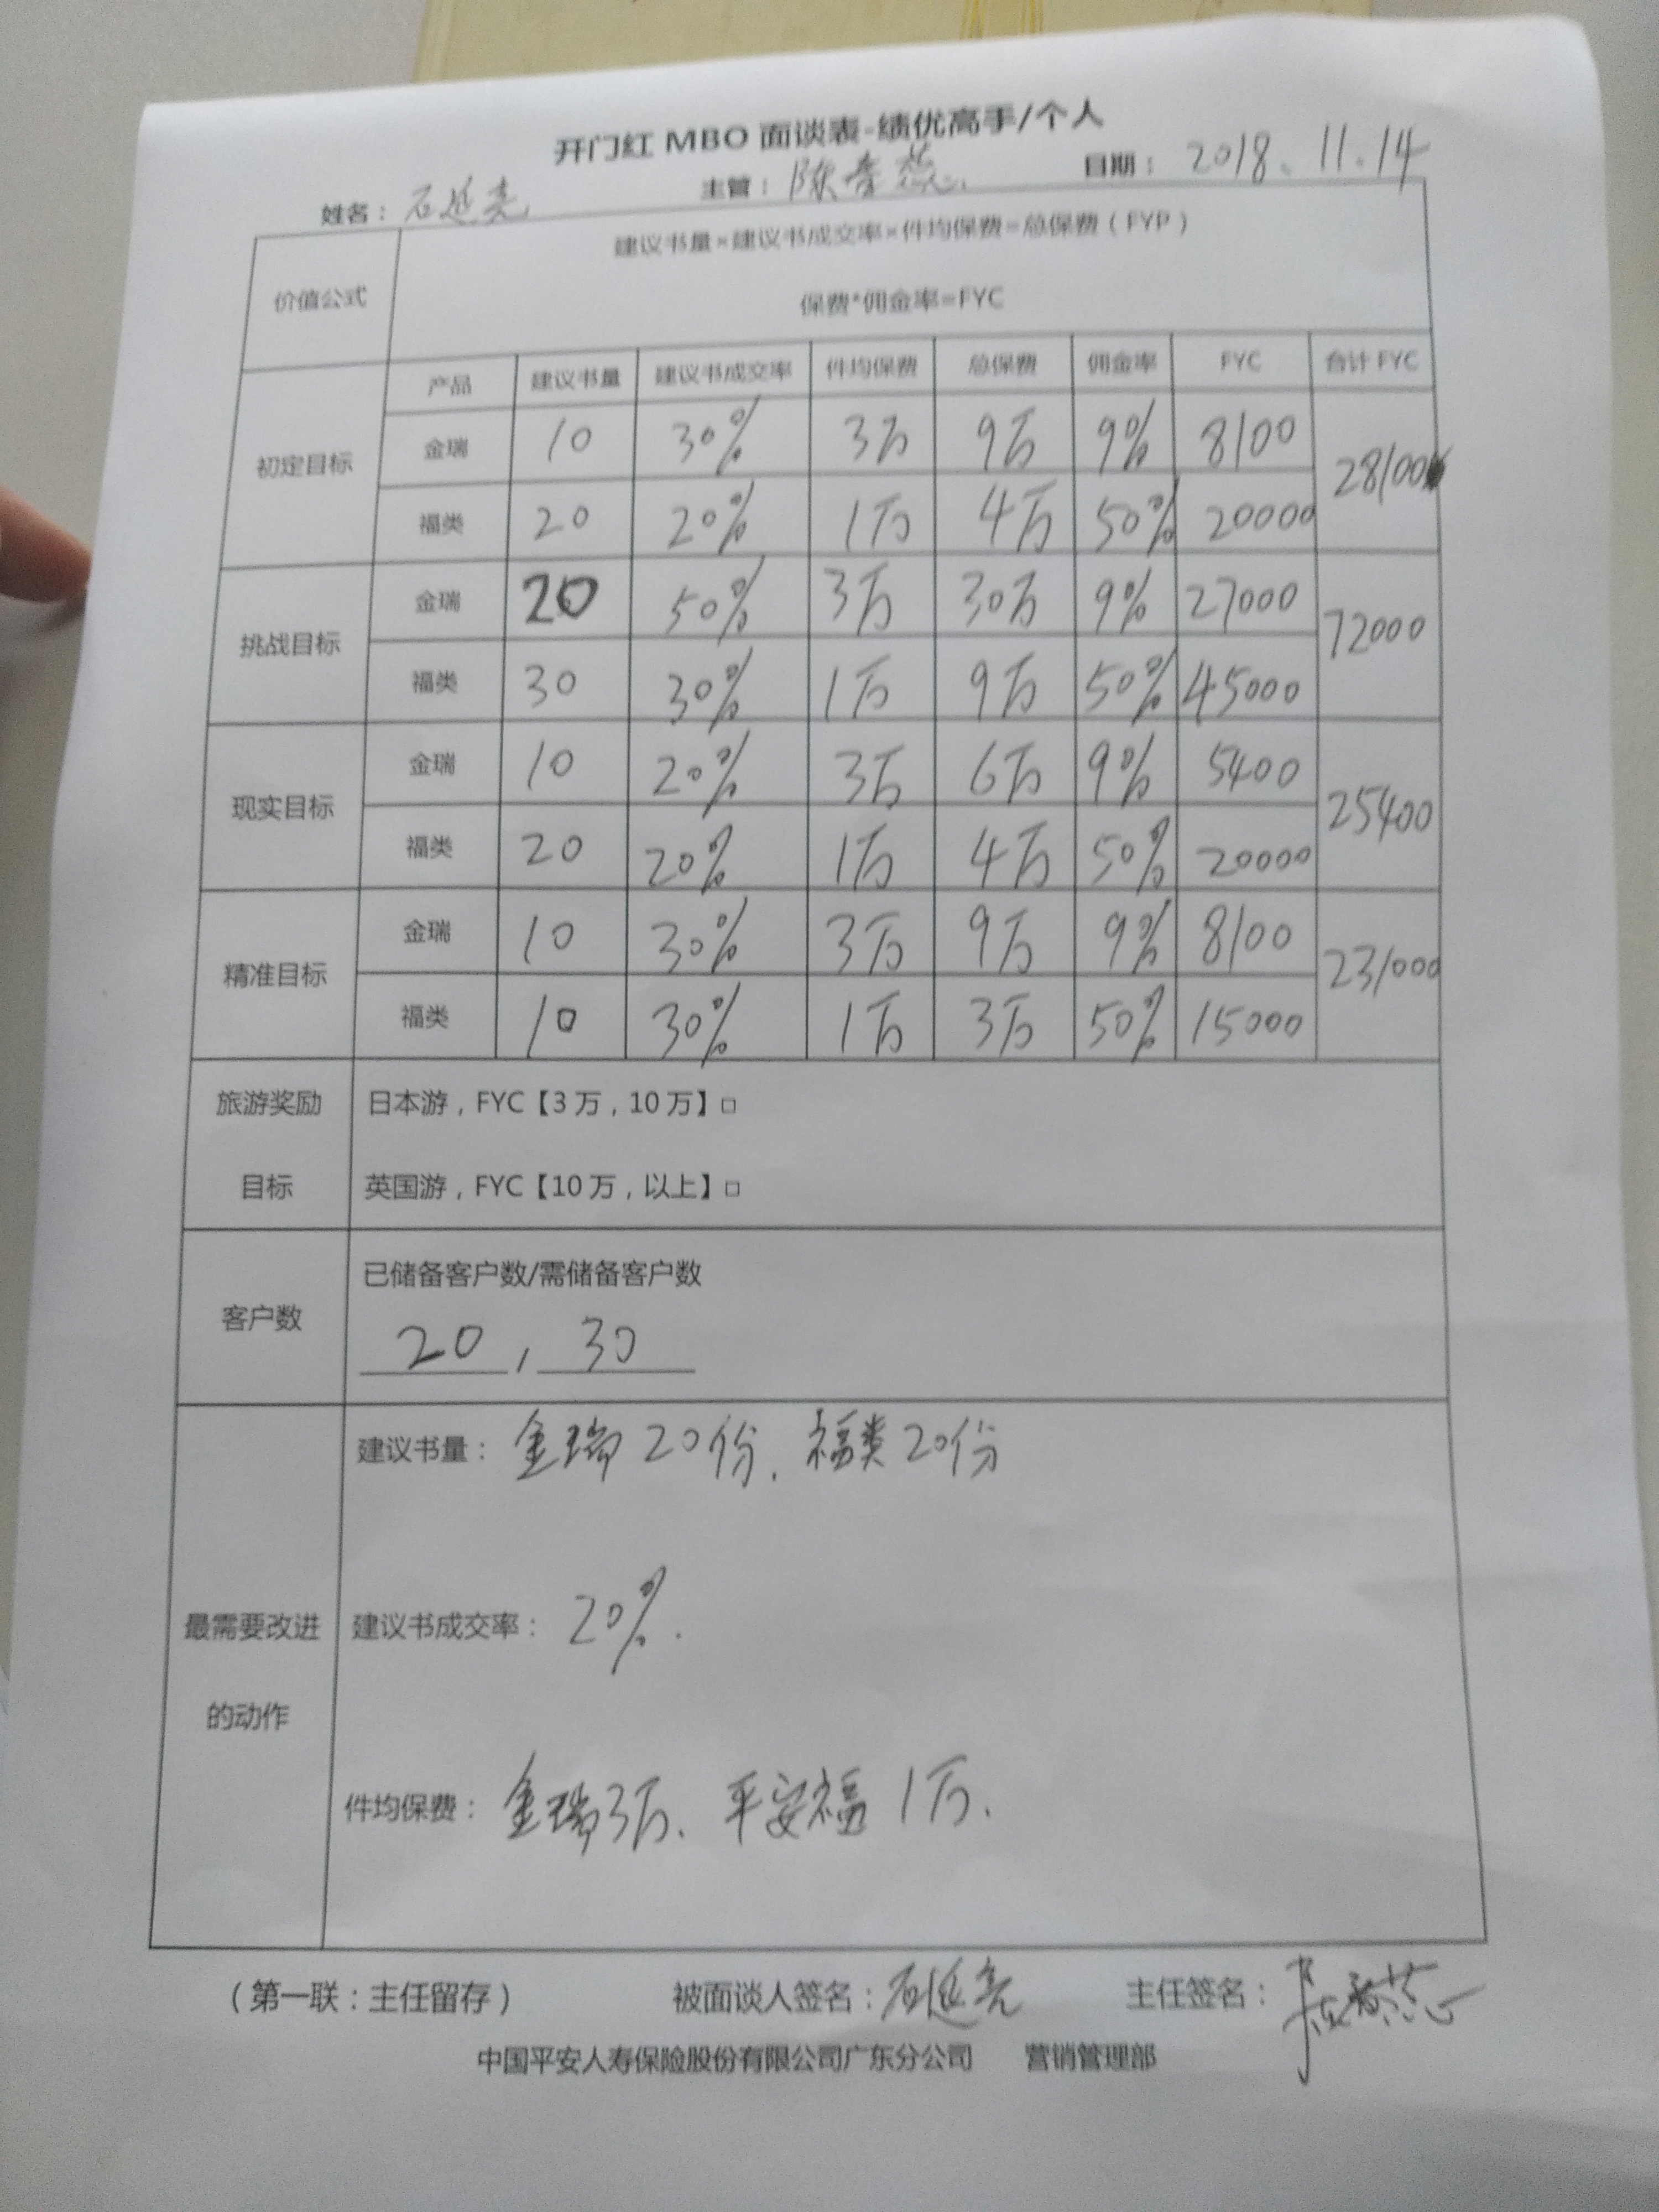 开门红 MBO 面谈表-绩优高手/个人
姓名：石延亮 主管：陈春燕 日期：2018.11.14
价值公式
建议书量×建议书成交率×件均保费=总保费（FYP）
保费*佣金率=FYC
产品 建议书量 建议书成交率 件均保费 总保费 佣金率 FYC 合计 FYC
初定目标
金瑞 10 30% 3万 9万 9% 8100
28100
福类 20 20% 1万 4万 50% 20000
挑战目标
金瑞 20 50% 3万 30万 9% 27000
72000
福类 30 30% 1万 9万 50% 45000
现实目标
金瑞 10 20% 3万 6万 9% 5400
25400
福类 20 20% 1万 4万 50% 20000
精准目标
金瑞 10 30% 3万 9万 9% 8100
231000
福类 10 30% 1万 3万 50% 15000
旅游奖励
目标
日本游，FYC【3万，10万】□
英国游，FYC【10万，以上】□
客户数
已储备客户数/需储备客户数
20 , 30
最需要改进
的动作
建议书量：金瑞20份、福类20份
建议书成交率：20%.
件均保费：金瑞3万、平安福1万、
（第一联：主任留存） 被面谈人签名：石延亮 主任签名：
中国平安人寿保险股份有限公司广东分公司 营销管理部